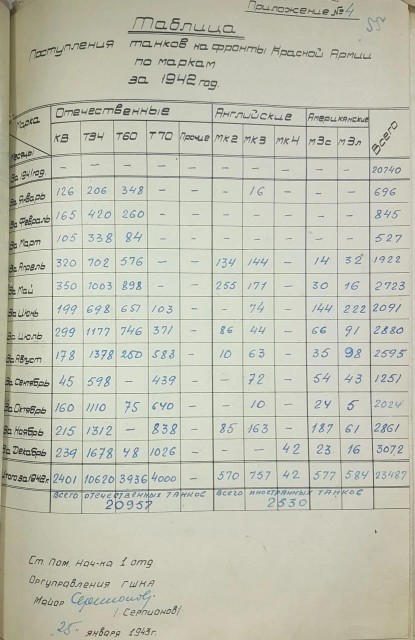 Приложение №4
Таблица
Поступления танков на фронты Красной Армии
по маркам
за 1942 год.
Марка Отечественные Английские Американские Всего
Месяцы КВ Т34 Т60 Т70 Прочие МК2 МК3 МК4 М3с М3л
За 1941 год. – – – – – – – – – – 20740
За Январь 126 206 348 – – – 16 – – – 696
За Февраль 165 420 260 – – – – – – – 845
За Март 105 338 84 – – – – – – – 527
За Апрель 320 702 576 – – 134 144 – 14 32 1922
За Май 350 1003 898 – – 255 171 – 30 16 2723
За Июнь 199 698 651 103 – – 74 – 144 222 2091
За Июль 299 1177 746 371 – 86 44 – 66 91 2880
За Август 178 1378 250 583 – 10 63 – 35 98 2595
За Сентябрь 45 598 – 439 – – 72 – 54 43 1251
За Октябрь 160 1110 75 640 – – 10 – 24 5 2024
За Ноябрь 215 1312 – 838 – 85 163 – 187 61 2861
За Декабрь 239 1678 48 1026 – – – 42 23 16 3072
Итого за 1942 г. 2401 10620 3936 4000 – 570 757 42 577 584 23487
Всего отечественных танков Всего иностранных танков
20957 2530
Ст. Пом. Нач-ка 1 отд.
Оргуправления ГШКА
Майор
/Серпионов/
25 января 1943 г.